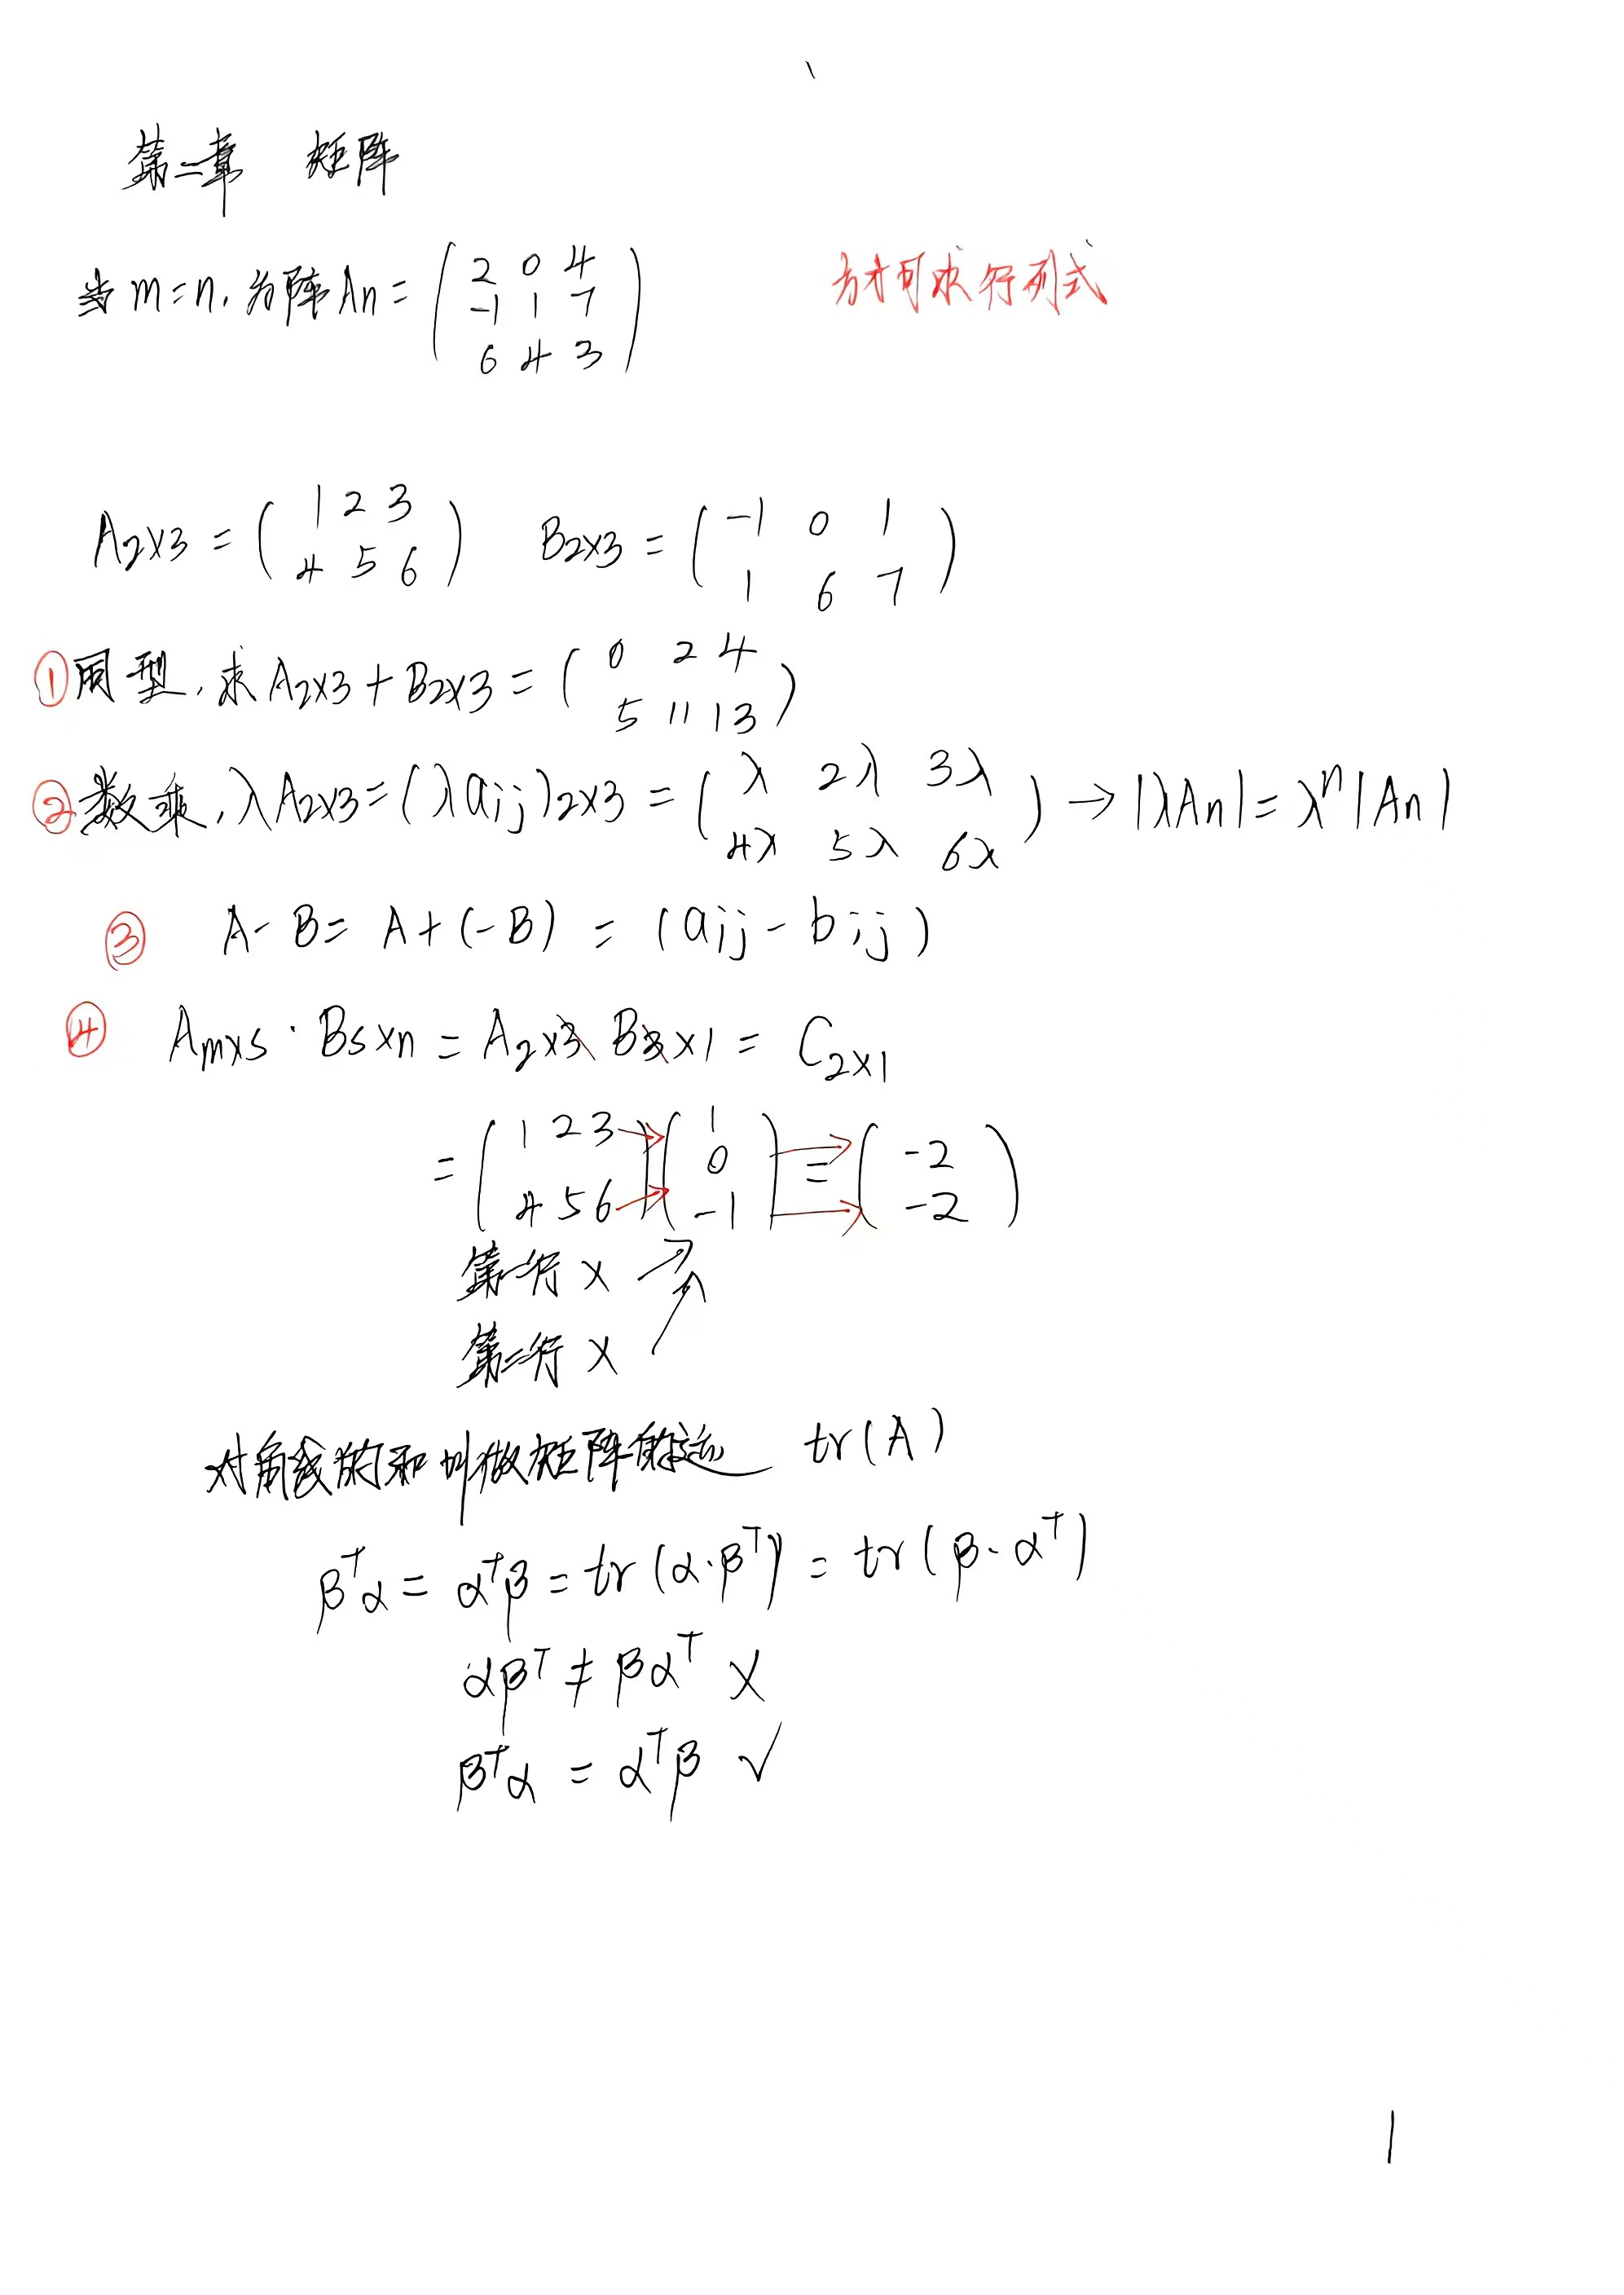 第二章 矩阵
当m=n,方阵An=(2 0 4
-1 1 7
6 4 3)
方才可求行列式
A2×3=(1 2 3
4 5 6) B2×3=(-1 0 1
1 6 7)
①同型,求A2×3+B2×3=(0 2 4
5 11 13)
②数乘,λA2×3=(λaij)2×3=(λ 2λ 3λ
4λ 5λ 6λ)→|λAn|=λⁿ|An|
③ A-B=A+(-B)=(aij-bij)
④ Am×s·Bs×n=A2×3 B3×1=C2×1
=(1 2 3
4 5 6)(1
0
-1)=(-2
-2)
第一行×
第二行×
对角线的和叫做矩阵的迹 tr(A)
βᵀα=αᵀβ=tr(α·βᵀ)=tr(β·αᵀ)
αβᵀ≠βαᵀ ×
βᵀα=αᵀβ ✓
1